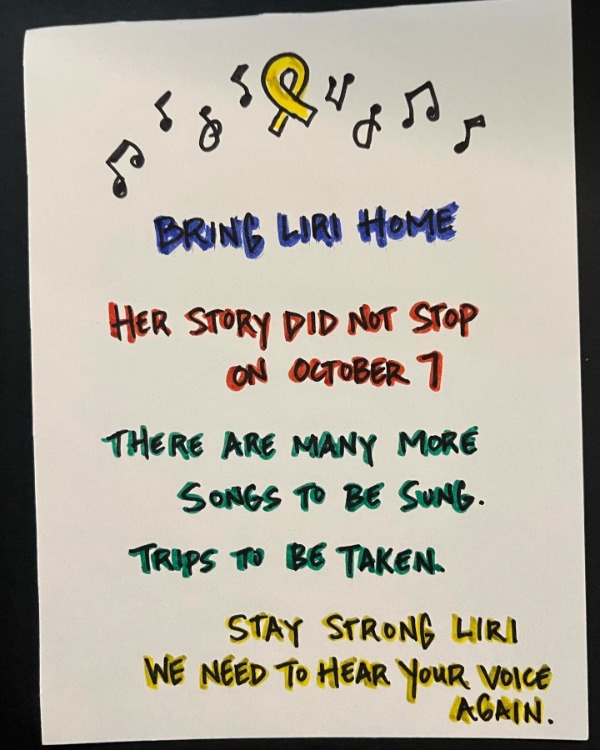 BRING LIRI HOME
HER STORY DID NOT STOP
ON OCTOBER 7
THERE ARE MANY MORE
SONGS TO BE SUNG.
TRIPS TO BE TAKEN.
STAY STRONG LIRI
WE NEED TO HEAR YOUR VOICE
AGAIN.